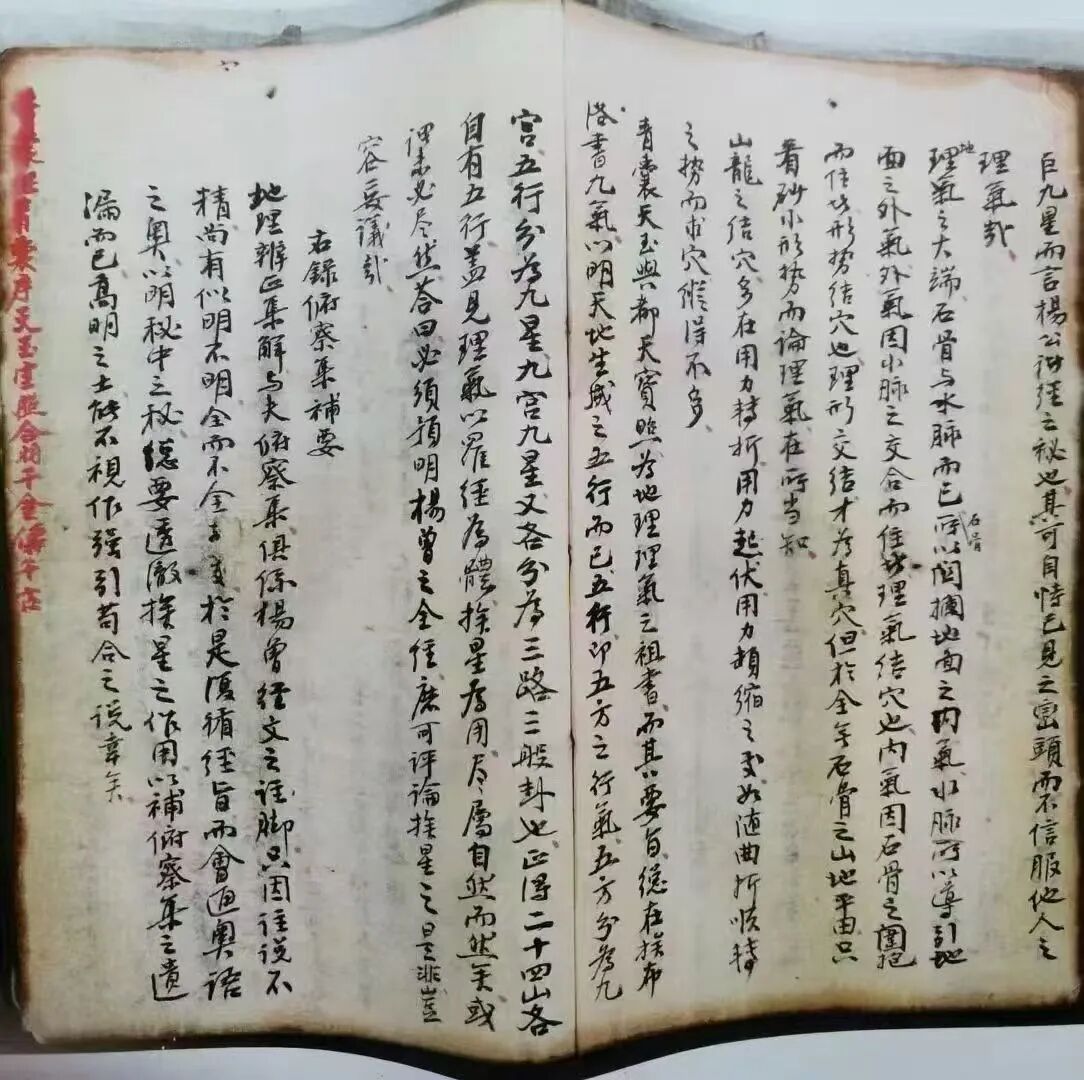 巨九星而言楊公此經之秘也其可自恃己見之巒頭而不信服他人之
理氣哉
地理氣之大端石骨與水脈而已石骨所以闌攔地面之內氣水脈所以導引地
面之外氣外氣因水脈之交合而住此理氣結穴也內氣因石骨之圍抱
而住此形勢結穴也理形交結才為真穴但於全無石骨之山地平田只
看砂水形勢而論理氣在所當知
山龍之結穴多在用力轉折用力起伏用力頓縮之處如隨曲折順轉
之勢而求穴總得不多
青囊天玉與都天寶照為地理理氣之祖書而其要旨總在挨布
洛書九氣以明天地生成之五行而已五行即五方之行氣五方分為九
宮五行分為九星九宮九星又各分為三路三般卦也正得二十四山各
自有五行蓋見理氣以羅經為體挨星為用尽屬自然而然矣或
謂未必尽然答曰必須領明楊曾之全經庶可評論挨星之是非豈
容妄議哉
右錄俯察集補要
地理辨正集解與夫俯察集俱係楊曾經文之註脚只因註說不
精尚有似明不明全而不全于是復循經旨而會通奧語
之奧以明秘中之秘總要透徹挨星之作用以補俯察集之遺
漏而已高明之士能不視作强引苟合之說幸矣
青囊序天玉宝照合